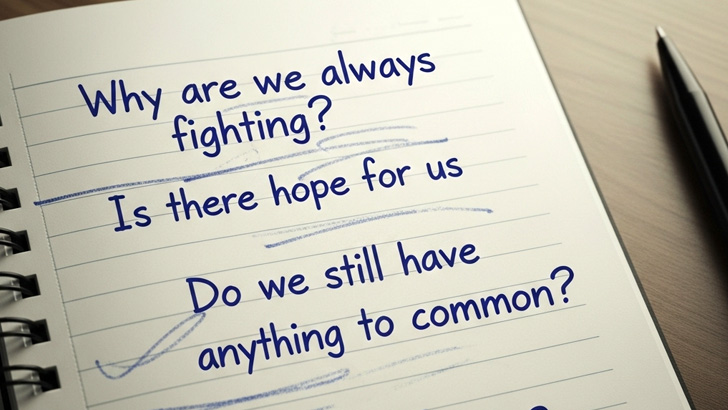 Why are we always
fighting?
Is there hope for us
Do we still have
anything to common?